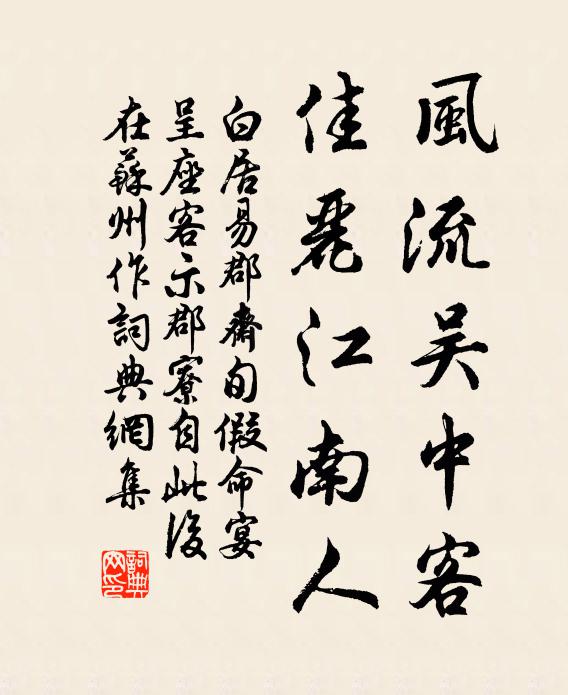 風流吴中客
佳麗江南人
白居易郡齋旬假命宴
呈座客示郡寮自此後
在蘇州作詞典網集
詞典
网印